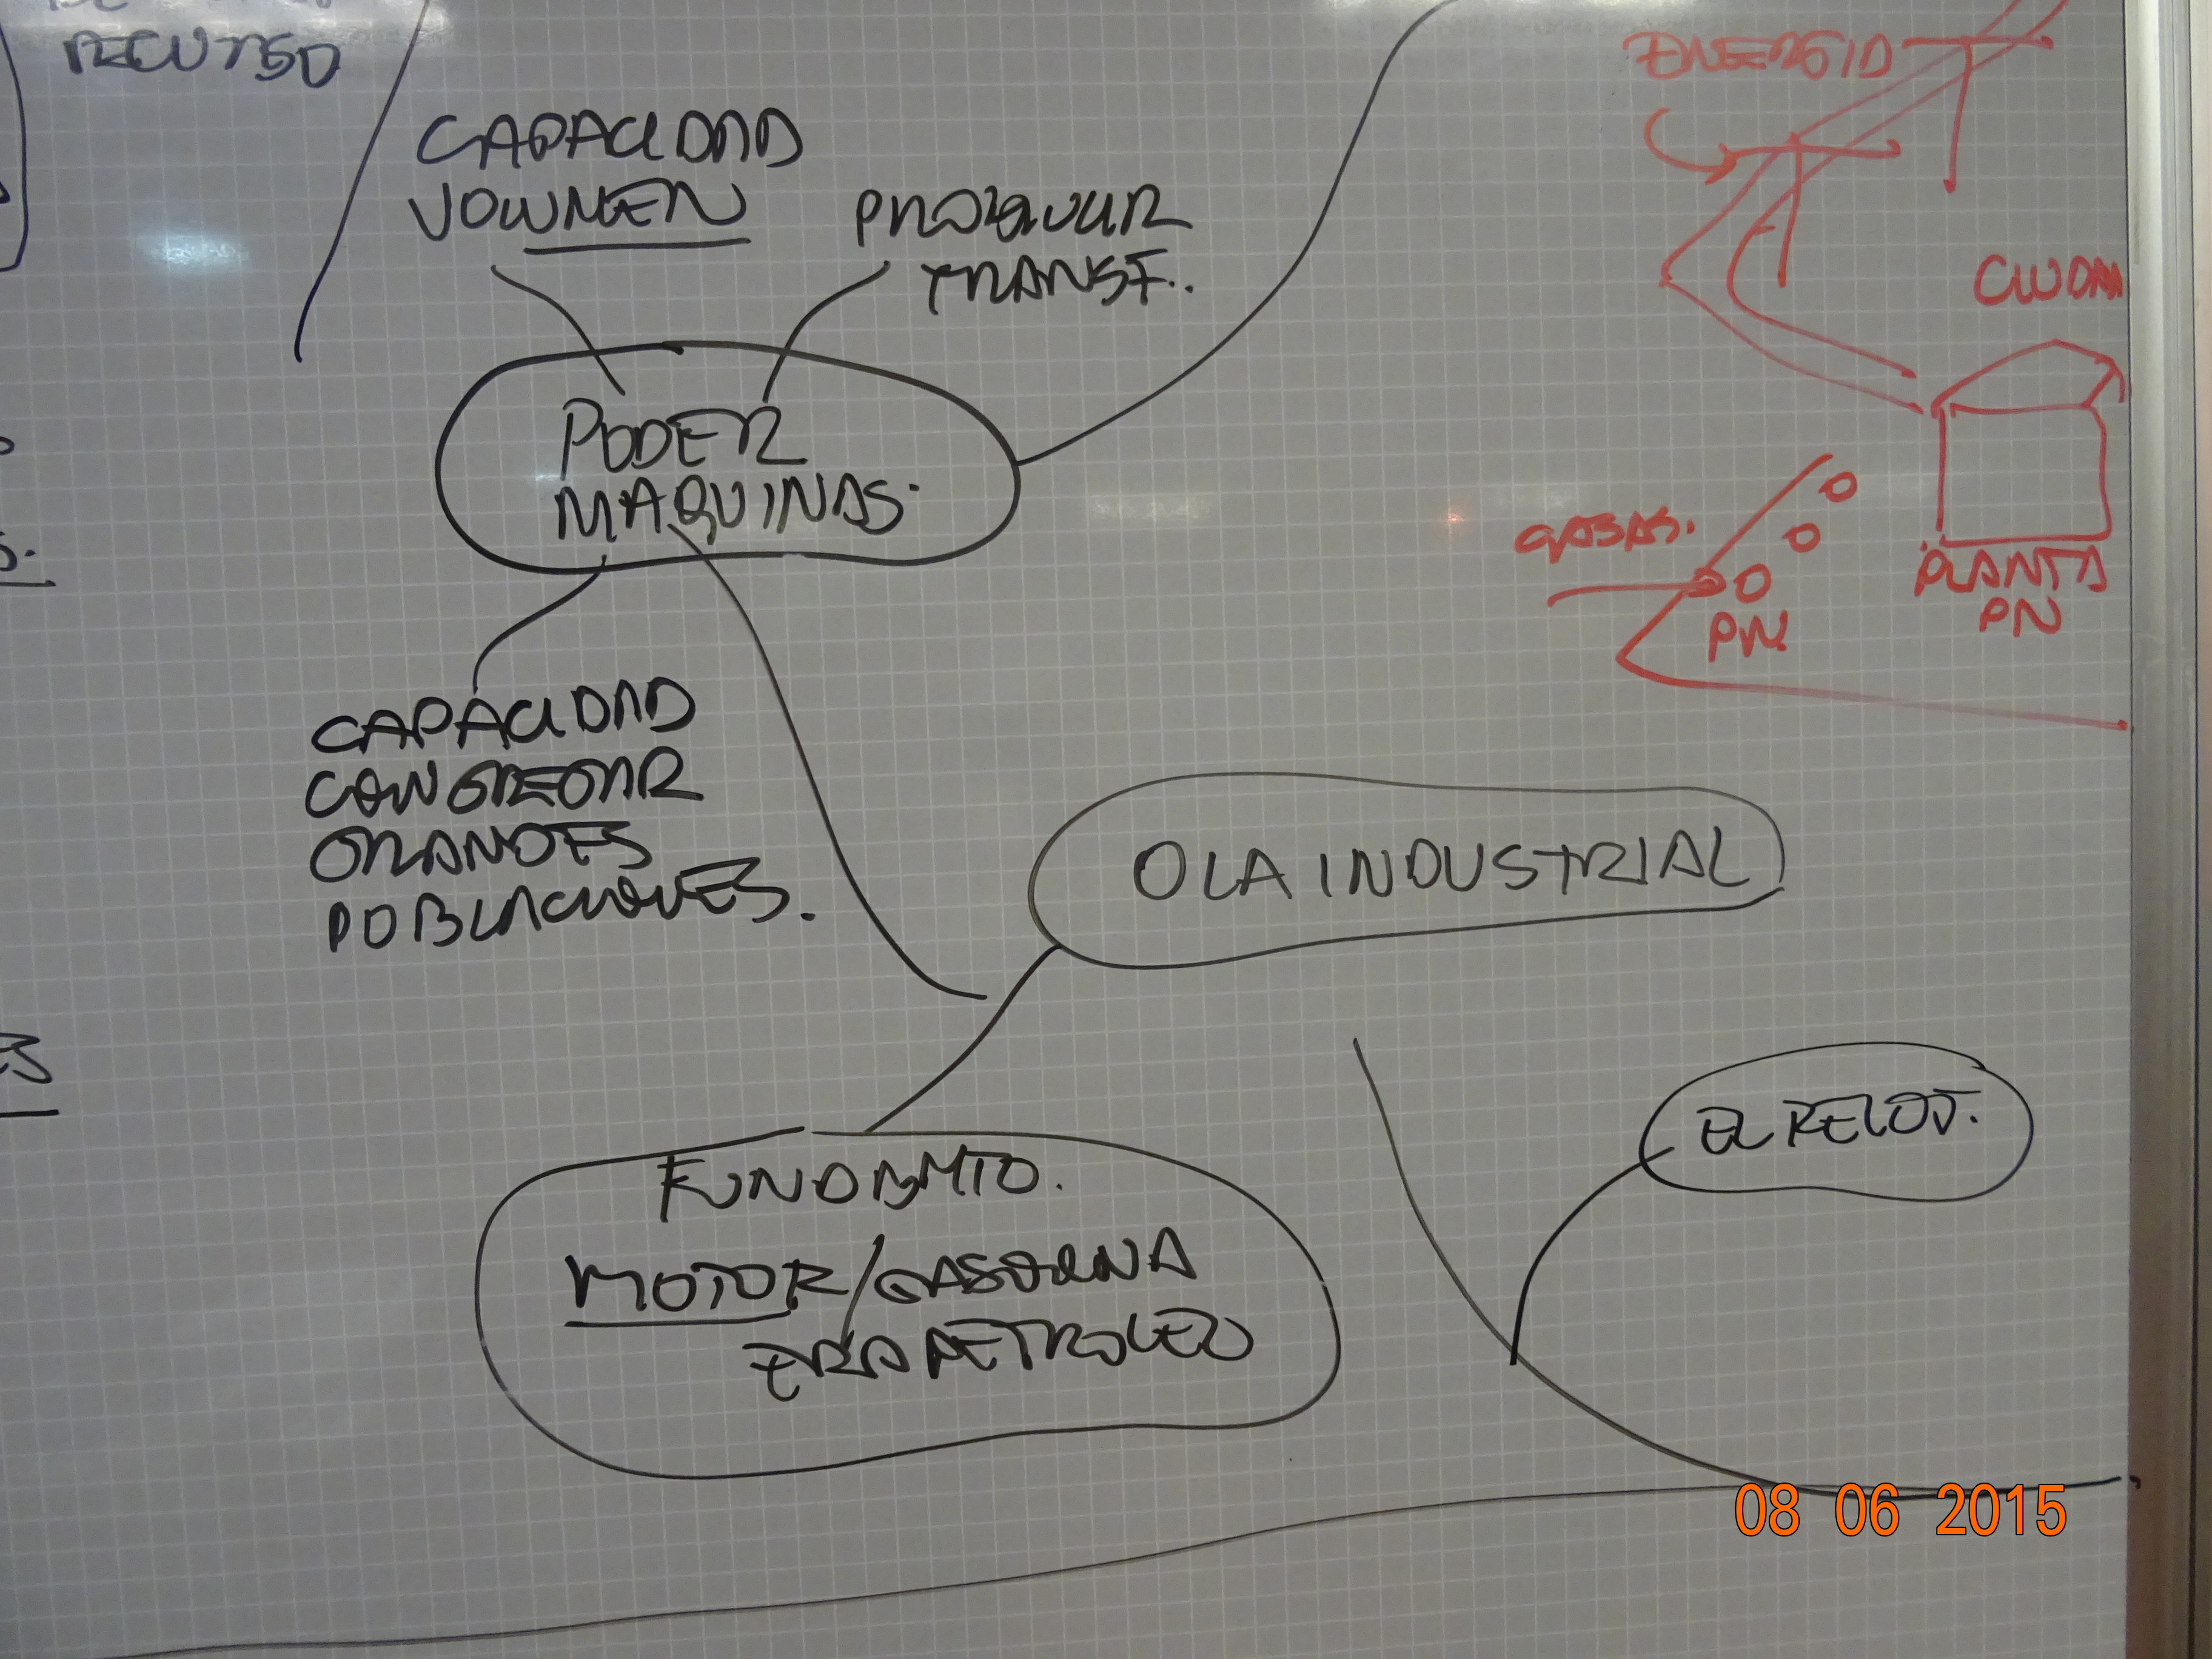 RECURSO
CAPACIDAD
VOLUMEN
PRODUCIR
TRANSF..
PODER
MAQUINAS.
CAPACIDAD
CONGREGAR
GRANDES
POBLACIONES.
ENERGIA
CIUDA
CASAS.
PN
PLANTA
PN
OLA INDUSTRIAL
EL RELOJ.
FUNDAMTO.
MOTOR/GASOLINA
ERA PETROLEO
08 06 2015